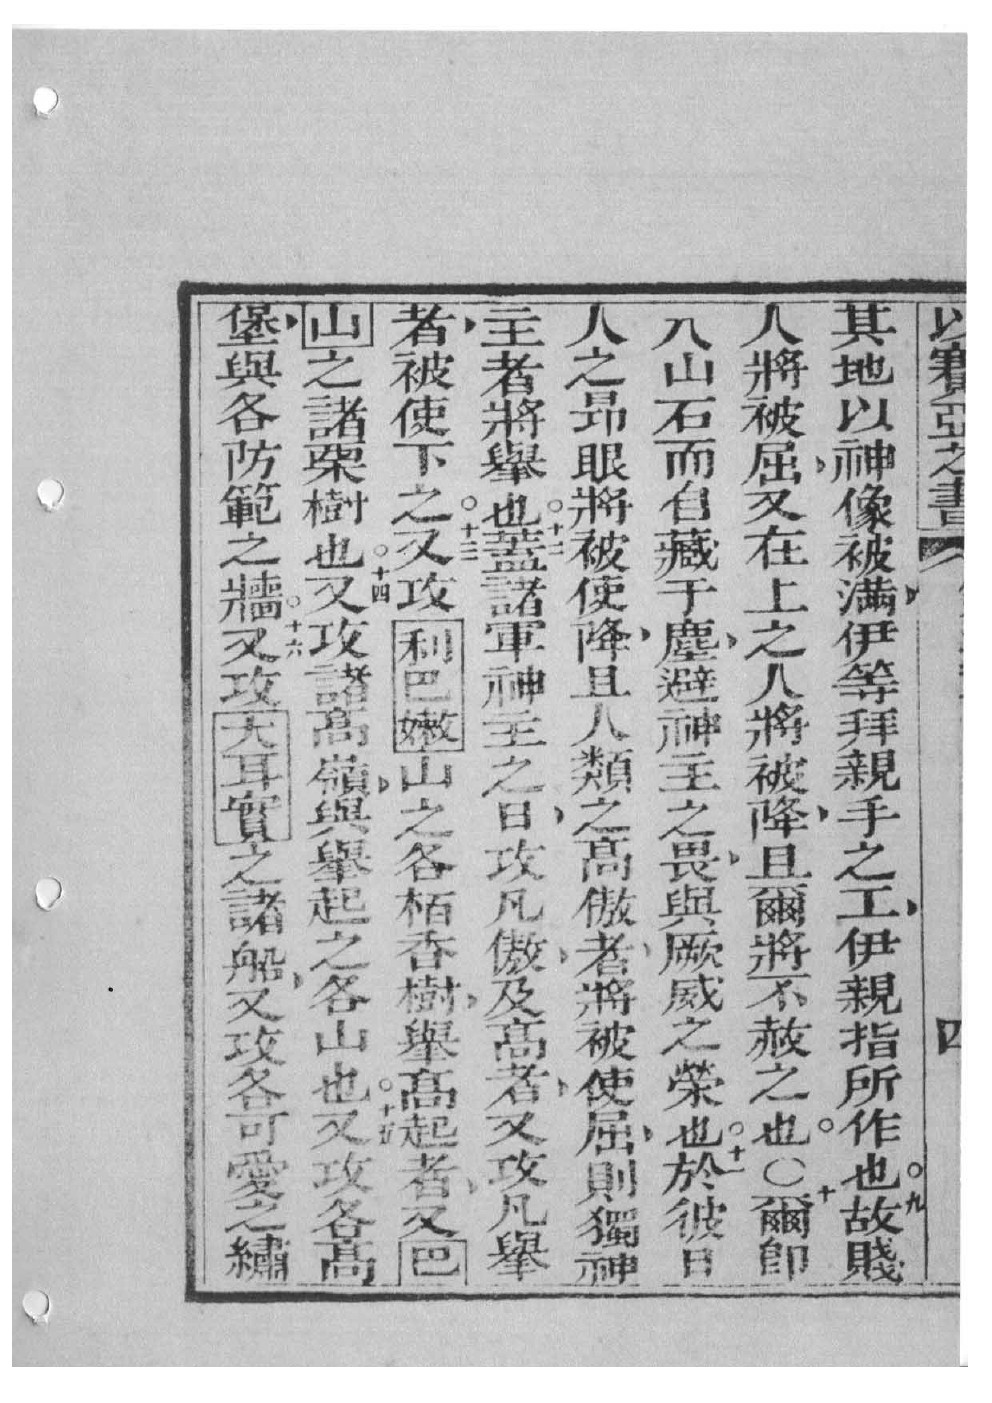 以賽亞之書 四
其地以神像被滿伊等拜親手之工伊親指所作也○九故賤
人將被屈又在上之人將被降且爾將不赦之也○〇十爾即
入山石而自藏于塵避神主之畏與厥威之榮也○十一於彼日
人之昂眼將被使降且人類之高傲者將被使屈則獨神
主者將舉也○十二蓋諸軍神主之日攻凡傲及高者又攻凡舉
者被使下之○十三又攻利巴嫩山之各栢香樹舉高起者又巴
山之諸栗樹也○十四又攻諸高嶺與舉起之各山也○十五又攻各高
堡與各防範之牆○十六又攻大耳實之諸船又攻各可愛之繡